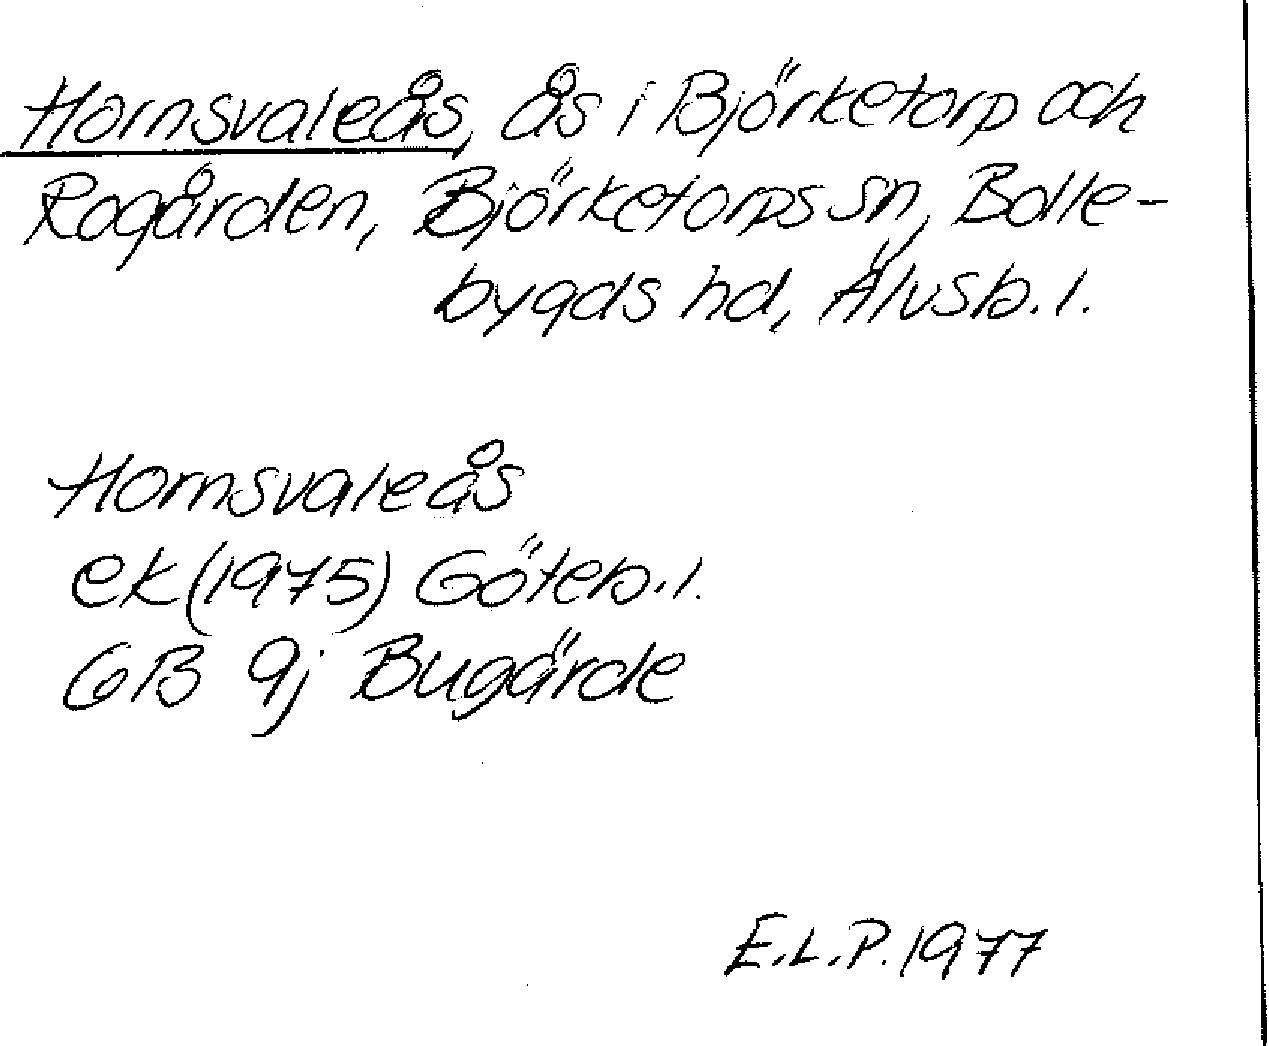 Hornsvaleås, ås i Björketorp och
Rogården, Björketorps sn, Bolle-
bygds hd, Älvsb. l.
Hornsvaleås
ek (1975) Göteb. l.
GB 9j Bugärde
E.L.P. 1977